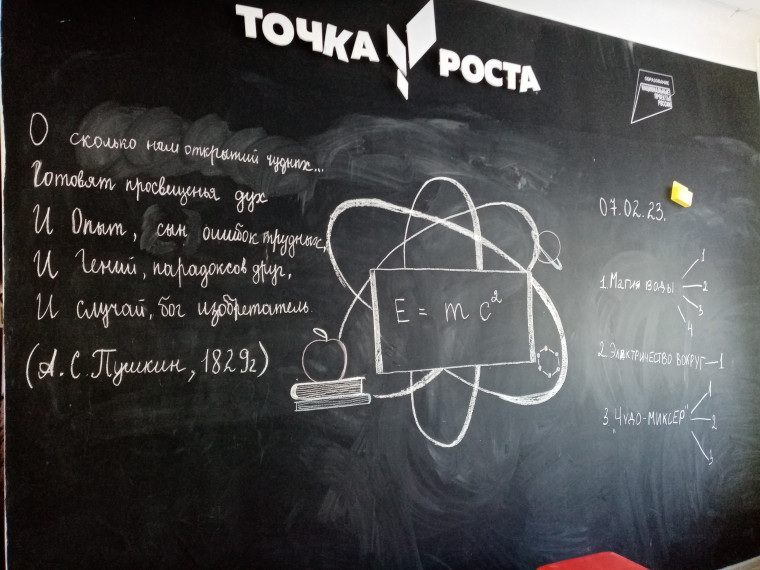 ТОЧКА РОСТА
ОБРАЗОВАНИЕ
НАЦИОНАЛЬНЫЕ
ПРОЕКТЫ
РОССИИ
О сколько нам открытий чудных...
Готовят просвещенья дух
И Опыт, сын ошибок трудных,
И Гений, парадоксов друг,
И случай, бог изобретатель.
(А.С.Пушкин, 1829г)
E = mc²
07.02.23.
1. Магия воды 1 2 3 4
2. Электричество вокруг 1
3. "Чудо-миксер" 1 2 3